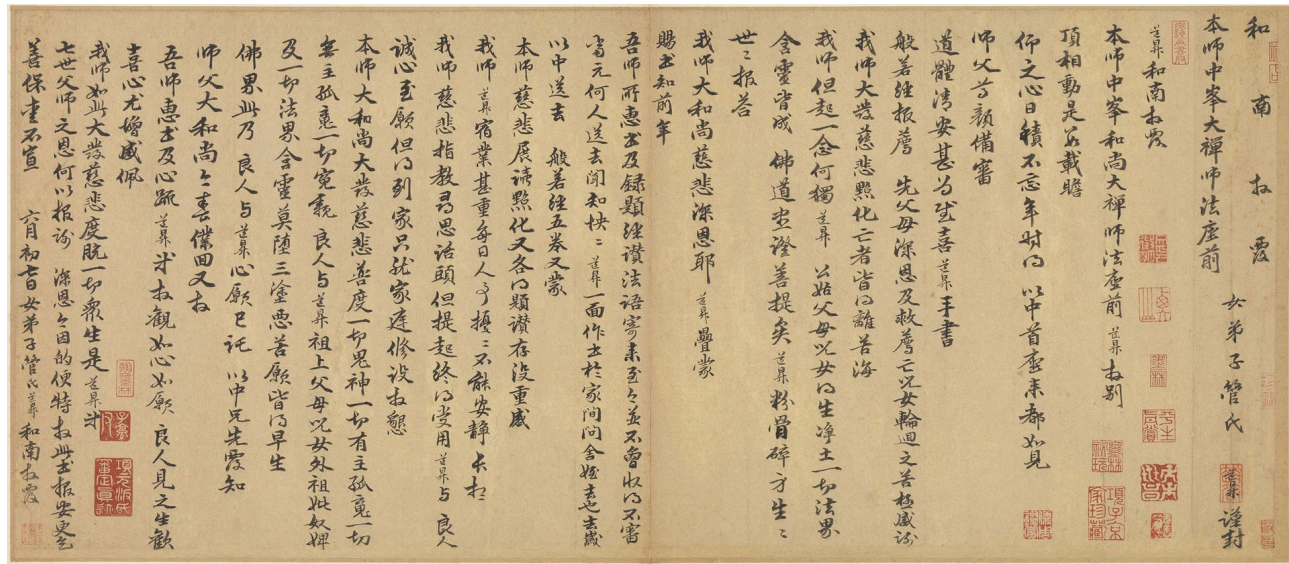 和南拜覆
本師中峯大禪師法座前
女弟子管氏道昇謹封
道昇和南拜覆
本師中峯和尚大禪師法座前道昇拜別
頂相動是數載瞻
仰之心日積不忘年時得以中首座來都如見
師父尊顏備審
道體清安甚為慰喜道昇手書
般若經報薦先父母深恩及救薦亡兒女輪迴之苦極感謝
我師大發慈悲點化亡者皆得離苦海
我師但起一念何獨道昇公姑父母兒女得生淨土一切法界
含靈皆成佛道盡證菩提矣道昇粉骨碎身生生
世世報荅
我師大和尚慈悲深恩耶道昇疊蒙
賜書知前年
吾師所惠書及録題經讚法語寄來至今並不曾收得不審
當元何人送去聞知怏怏道昇一面作書於家間問舍姪去也去歲
以中送去般若經五卷又蒙
本師慈悲展讀點化又各得題讚存沒重感
我師道昇宿業甚重每日人事擾擾不能安靜長想
我師慈悲指教尋思話頭但提起終得受用道昇與良人
誠心至願但得到家只就家庭修設拜懇
本師大和尚大發慈悲普度一切鬼神一切有主孤魂一切
無主孤魂一切冤親良人與道昇祖上父母兒女外祖妣奴婢
及一切法界含靈莫墮三塗惡苦願皆得早生
佛界此乃良人與道昇心願已託以中兄先覆知
師父大和尚今春僕回又拜
吾師惠書及心疏道昇等拜觀如心如願良人見之生歡
喜心尤增感佩
我師如此大發慈悲度脫一切衆生是道昇等
七世父師之恩何以報謝深恩今因的便特拜此書報安更乞
善保重不宣六月初七日女弟子管氏道昇和南拜覆